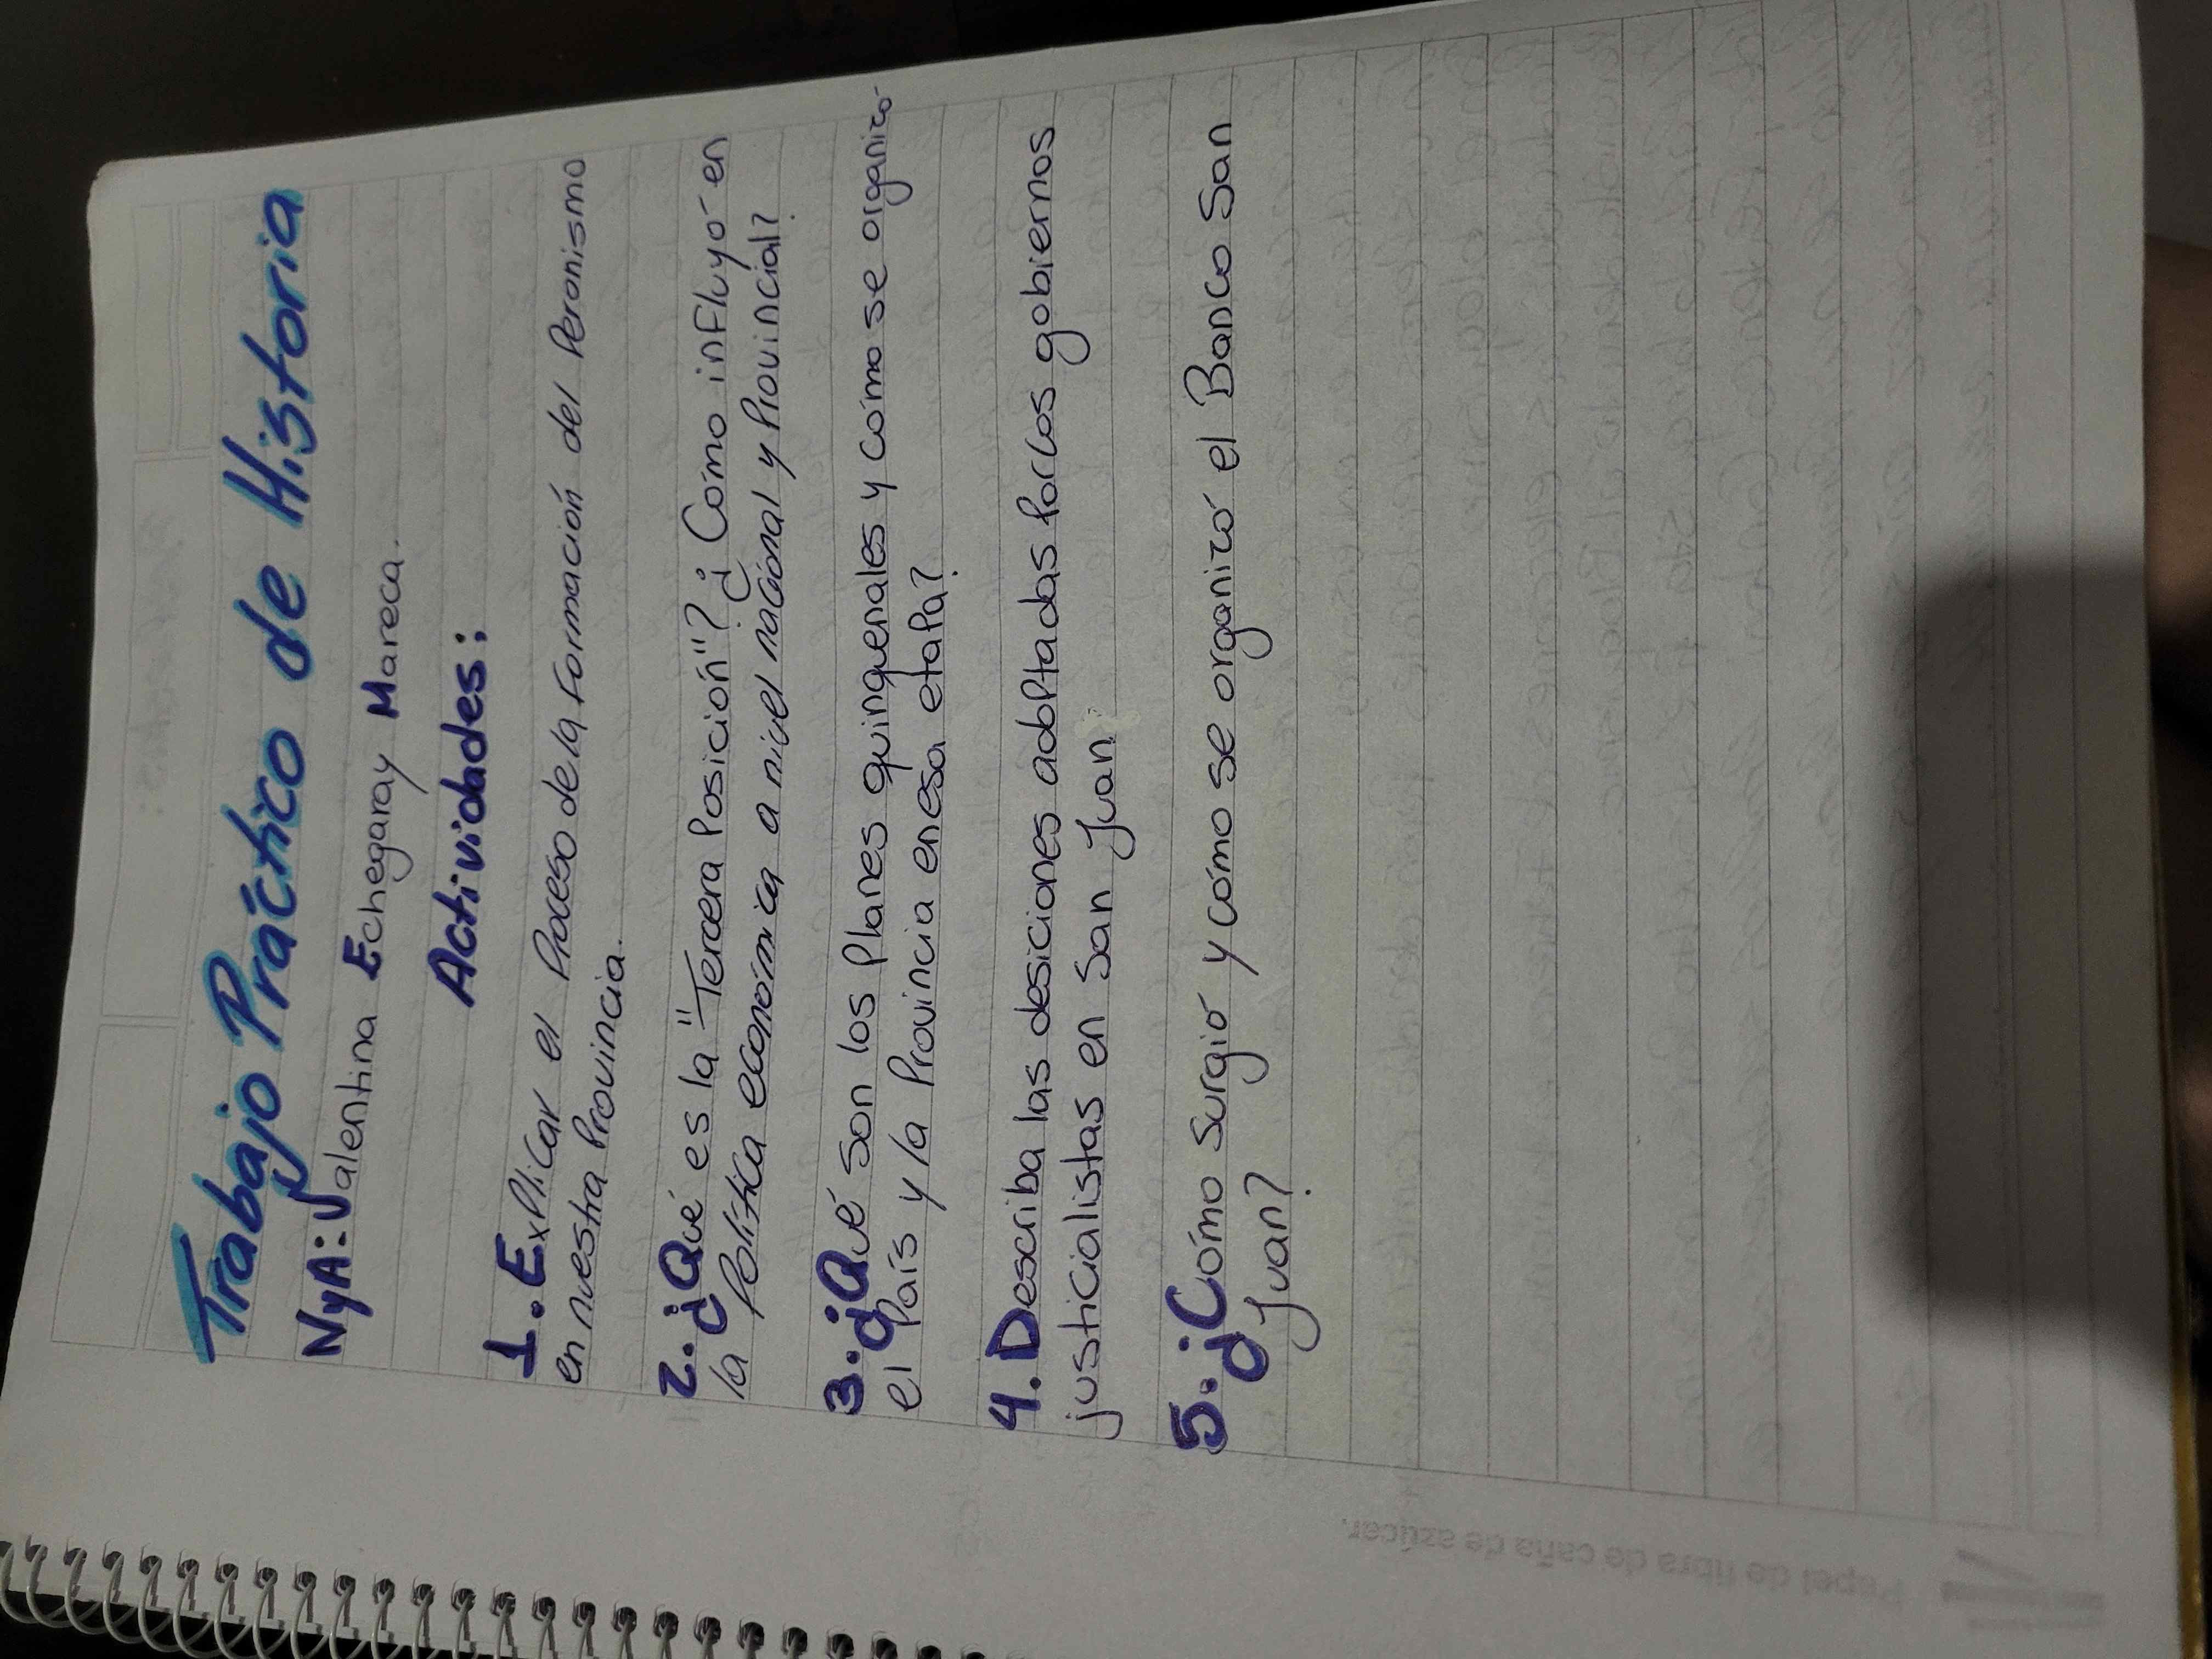 Trabajo Práctico de Historia
NyA: Valentina Echegaray Mareca.
Actividades:
1. Explicar el Proceso de la Formación del Peronismo
en nuestra Provincia.
2. ¿Qué es la "Tercera Posición"? ¿Cómo influyó en
la Política económica a nivel nacional y Provincial?
3. ¿Qué son los Planes quinquenales y cómo se organizó
el País y la Provincia en esa etapa?
4. Describa las desiciones adoptadas por los gobiernos
justicialistas en San Juan
5. ¿Cómo surgió y cómo se organizó el Banco San
Juan?
Papel de fibra de caña de azúcar.